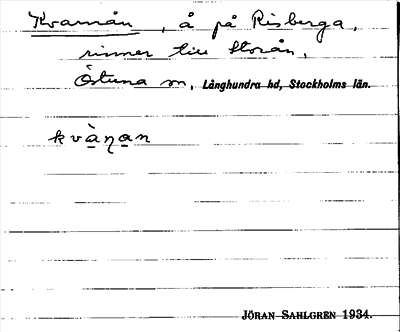 Kvarnån, å på Risberga,
rinner till Storån,
Östuna sn, Långhundra hd, Stockholms län.
kvà̱ṇa̱n
JÖRAN SAHLGREN 1934.